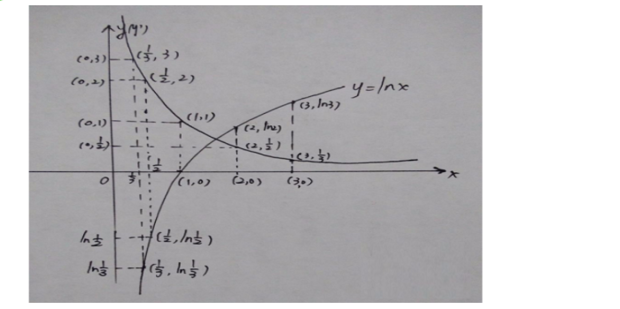 y(y')
(0,3) (1/3, 3)
(0,2) (1/2, 2)
y=lnx
(3,ln3)
(0,1) (1,1)
(2,ln2)
(0,1/2) (2,1/2)
(3,1/3)
1/2
0 1/3 (1,0) (2,0) (3,0) x
ln1/2 (1/2, ln1/2)
ln1/3 (1/3, ln1/3)